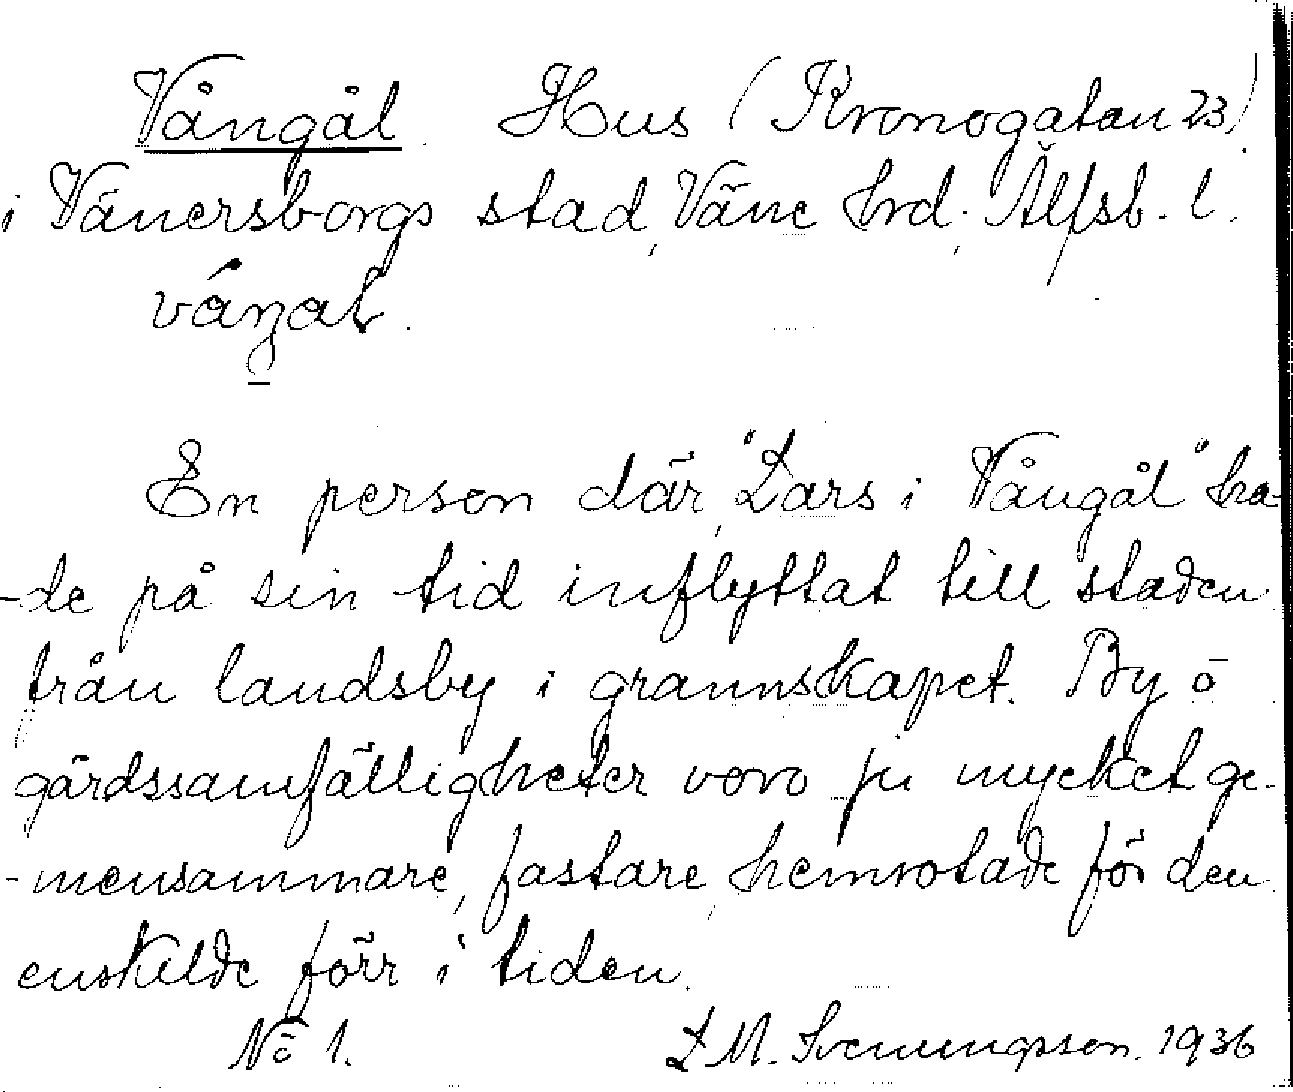 Vångål. Hus (Kronogatan 23)
i Vänersborgs stad, Väne hrd. Älfsb. l.
våŋal.
En person där, "Lars i Vångål" ha-
-de på sin tid inflyttat till staden
från landsby i grannskapet. By ō
gärdssamfälligheter voro ju mycket ge-
-mensammare, fastare, hemrotade för den
enskilde förr i tiden.
No 1. L M. Svenungsson. 1936